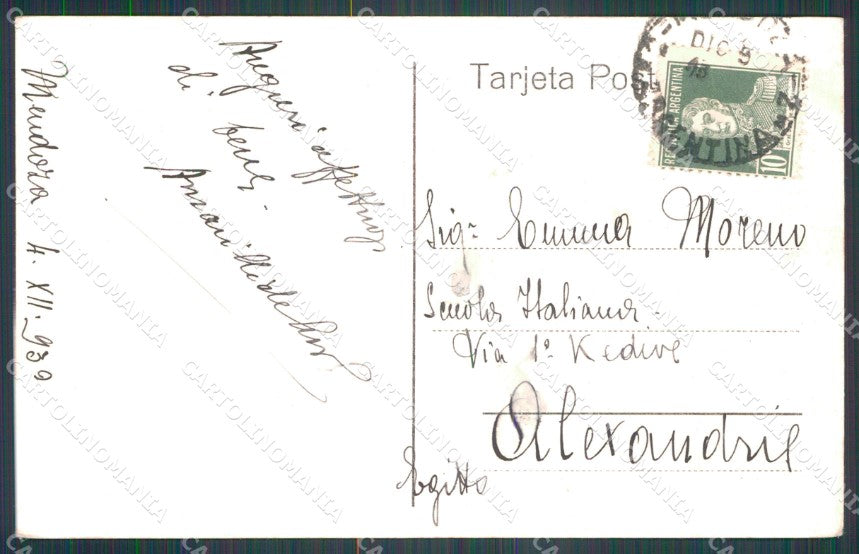 Mendora 4. XII. 939
Auguri affettuosi
di bene.
Tarjeta Post
DIC 5
REP. ARGENTINA
10
ARGENTINA
Sigra Emma Moreno
Scuola Italiana.
Via 1° Kedive
Alexandrie
Egitto
CARTOLINOMANIA